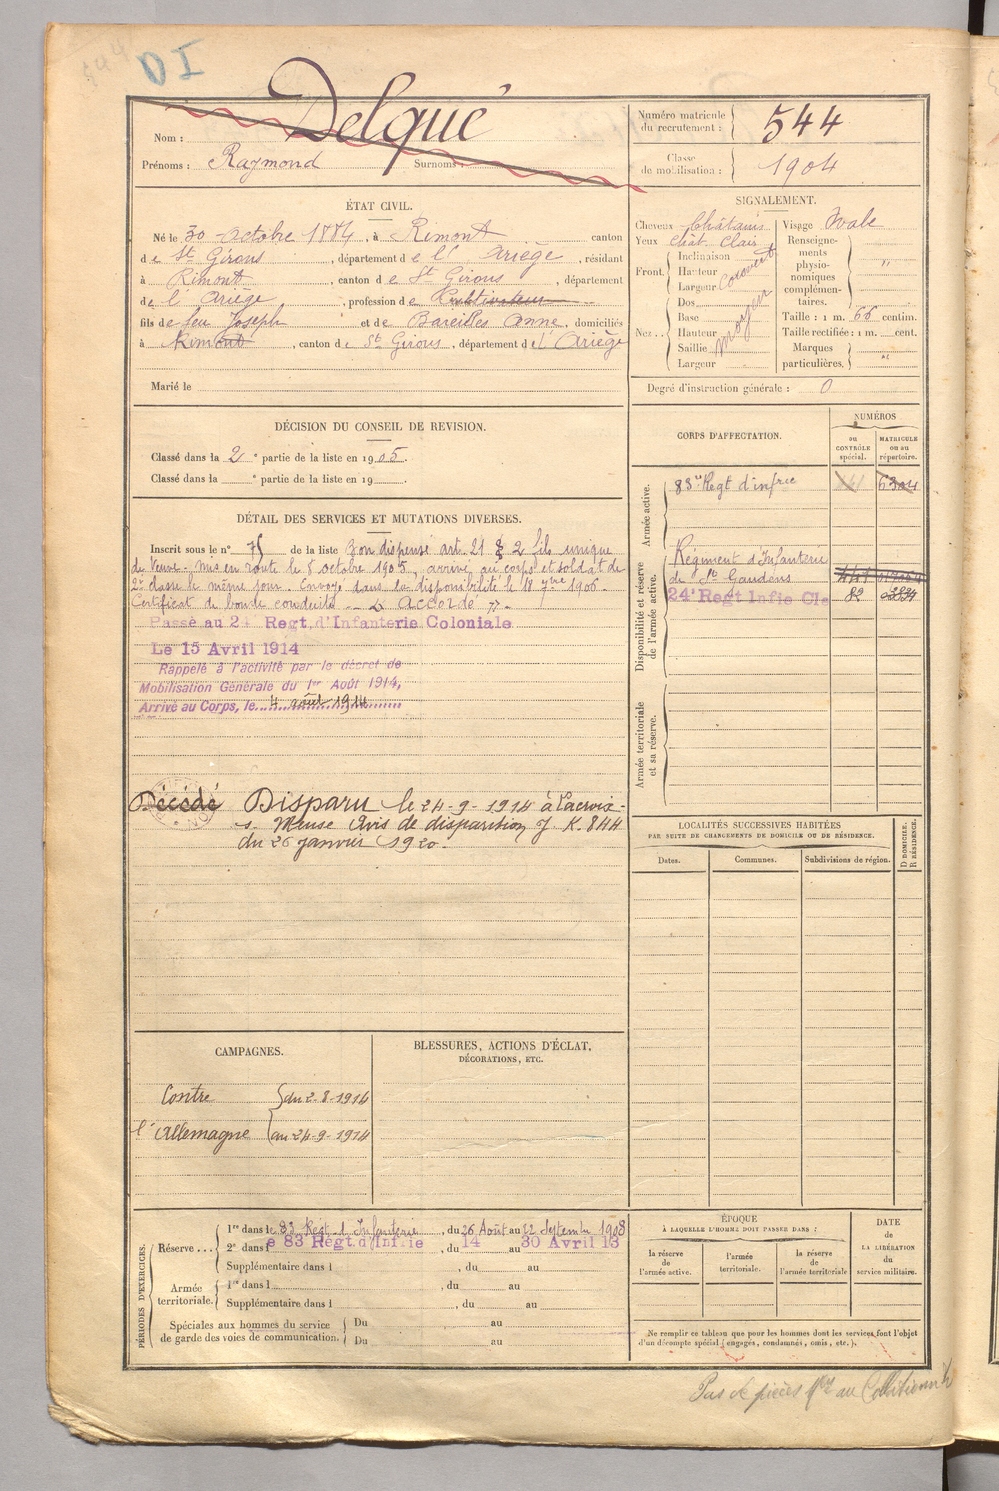 DI
Nom : Delqué
Prénoms : Raymond Surnoms :
Numéro matricule du recrutement : 544
Classe de mobilisation : 1904
ÉTAT CIVIL.
Né le 30 Octobre 1884, à Rimont canton
de St Girons, département de l'Ariège, résidant
à Rimont, canton de St Girons, département
de l'Ariège, profession de Cultivateur
fils de feu Joseph et de Bareilles Anne, domiciliés
à Rimont, canton de St Girons, département de l'Ariège
Marié le
SIGNALEMENT.
Cheveux Châtains
Yeux chât. Clair
Front. Inclinaison
Hauteur
Largeur
Nez. Dos
Base
Hauteur
Saillie
Largeur
moyen
Visage Ovale
Renseignements physionomiques complémentaires. "
Taille : 1 m. 66 centim.
Taille rectifiée : 1 m. cent.
Marques particulières. "
Degré d'instruction générale : 0
DÉCISION DU CONSEIL DE REVISION.
Classé dans la 2e partie de la liste en 1905.
Classé dans la e partie de la liste en 19 .
CORPS D'AFFECTATION.
NUMÉROS
au CONTRÔLE spécial.
MATRICULE ou au répertoire.
Armée active.
83e Regt d'infrie
Disponibilité et réserve de l'armée active.
Régiment d'Infanterie
de St Gaudens
24e Regt Infie Cle 82
Armée territoriale et sa réserve.
DÉTAIL DES SERVICES ET MUTATIONS DIVERSES.
Inscrit sous le n° 75 de la liste Bon dispensé art. 21 § 2 fils unique
de Veuve. Mis en route le 8 octobre 1905, arrivé au corps et soldat de
2e classe le même jour. Envoyé dans la disponibilité le 18 7bre 1906.
Certificat de bonne conduite « accordé ».
Passé au 24 Regt d'Infanterie Coloniale
Le 15 Avril 1914
Rappelé à l'activité par le décret de
Mobilisation Générale du 1er Août 1914,
Arrivé au Corps, le 4 août 1914
Décédé Disparu le 24-9-1914 à Lacroix-
s. Meuse Avis de disparition J. K. 844
du 26 janvier 1920.
LOCALITÉS SUCCESSIVES HABITÉES
PAR SUITE DE CHANGEMENTS DE DOMICILE OU DE RÉSIDENCE.
Dates. Communes. Subdivisions de région. D DOMICILE. R RÉSIDENCE.
CAMPAGNES.
Contre du 2-8-1914
l'Allemagne au 24-9-1914
BLESSURES, ACTIONS D'ÉCLAT,
DÉCORATIONS, ETC.
PÉRIODES D'EXERCICES.
Réserve... 1re dans le 83 Regt d'Infanterie, du 26 Août au 22 Septembre 1908
2e dans le 83 Regt d'Infie, du 14 au 30 Avril 13
Supplémentaire dans l , du au
Armée territoriale. 1re dans l , du au
Supplémentaire dans l , du au
Spéciales aux hommes du service de garde des voies de communication. Du au
Du au
ÉPOQUE
À LAQUELLE L'HOMME DOIT PASSER DANS :
la réserve de l'armée active.
l'armée territoriale.
la réserve de l'armée territoriale
DATE de LA LIBÉRATION du service militaire.
Ne remplir ce tableau que pour les hommes dont les services font l'objet
d'un décompte spécial (engagés, condamnés, omis, etc.).
Pas de pièces au